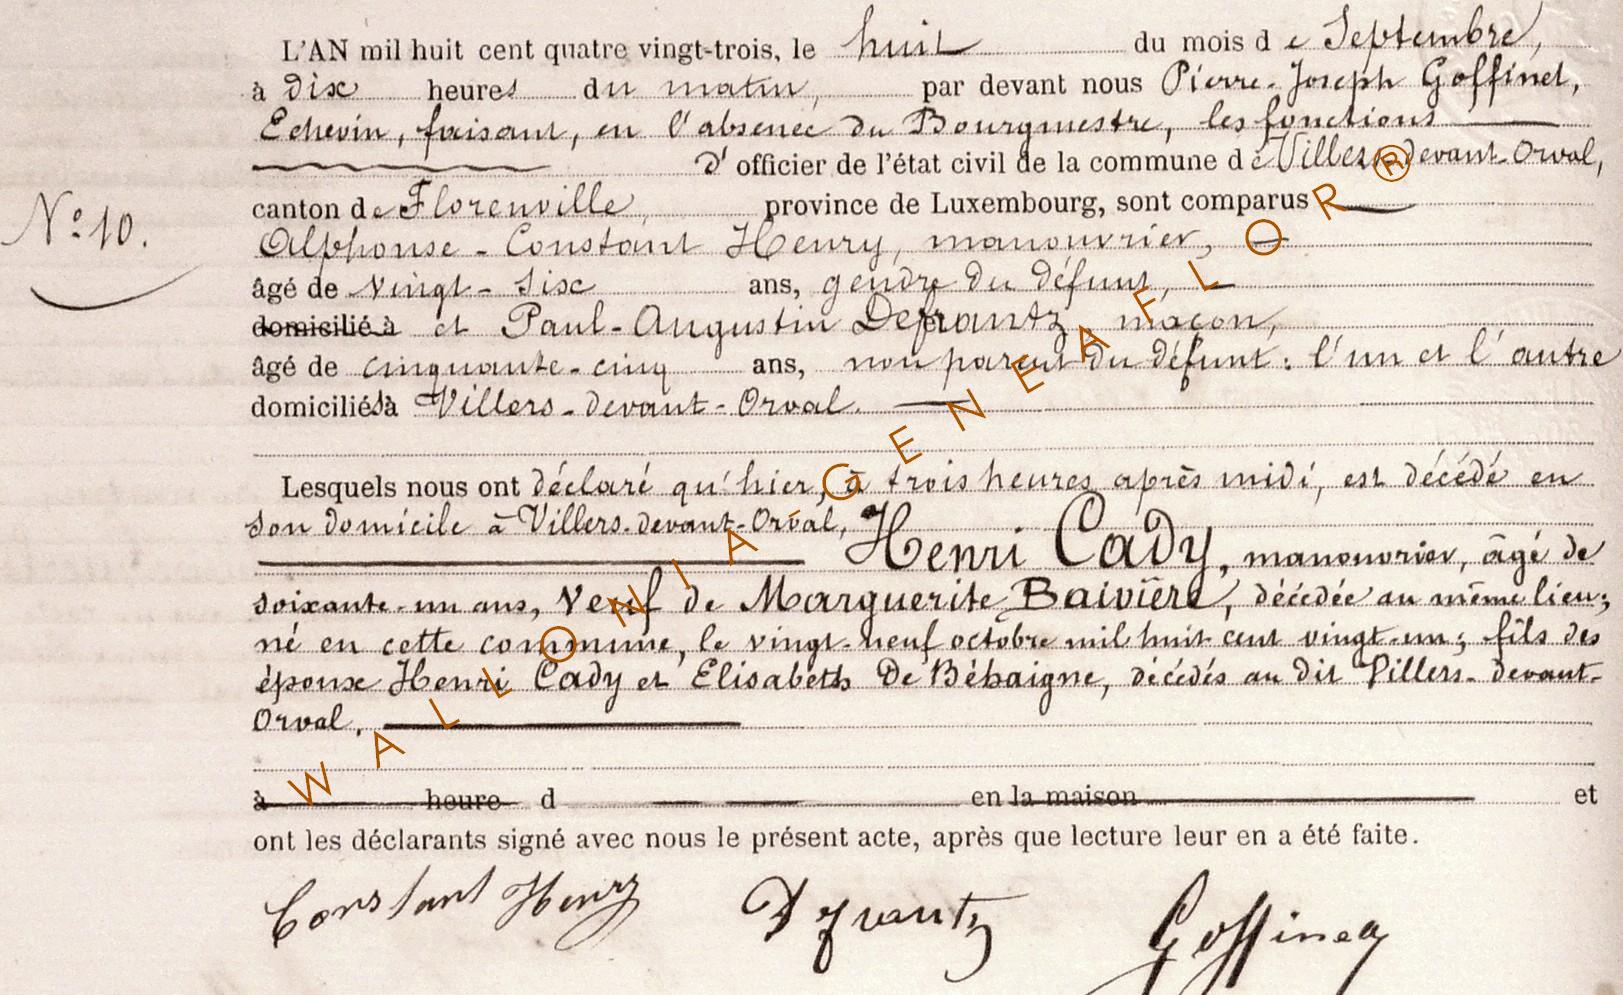 L'AN mil huit cent quatre vingt-trois, le huit du mois de Septembre,
à dix heures du matin, par devant nous Pierre-Joseph Goffinet,
Echevin, faisant, en l'absence du Bourgmestre, les fonctions
d'officier de l'état civil de la commune de Villers-devant-Orval,
canton de Florenville, province de Luxembourg, sont comparus
N° 10.
Alphonse-Constant Henry, manouvrier,
âgé de vingt-six ans, gendre du défunt,
domicilié à et Paul-Augustin Defrantz, maçon,
âgé de cinquante-cinq ans, non parent du défunt : l'un et l'autre
domiciliés à Villers-devant-Orval.
Lesquels nous ont déclaré qu'hier, à trois heures après midi, est décédé en
son domicile à Villers-devant-Orval,
Henri Cady, manouvrier, âgé de
soixante-un ans, veuf de Marguerite Baivière, décédée au même lieu;
né en cette commune, le vingt-neuf octobre mil huit cent vingt-un; fils des
époux Henri Cady et Elisabeth De Béhaigne, décédés au dit Villers-devant-
Orval.
à heure d en la maison et
ont les déclarants signé avec nous le présent acte, après que lecture leur en a été faite.
Constant Henry Defrantz Goffinet
WALLONIA-GENEAFLOR®